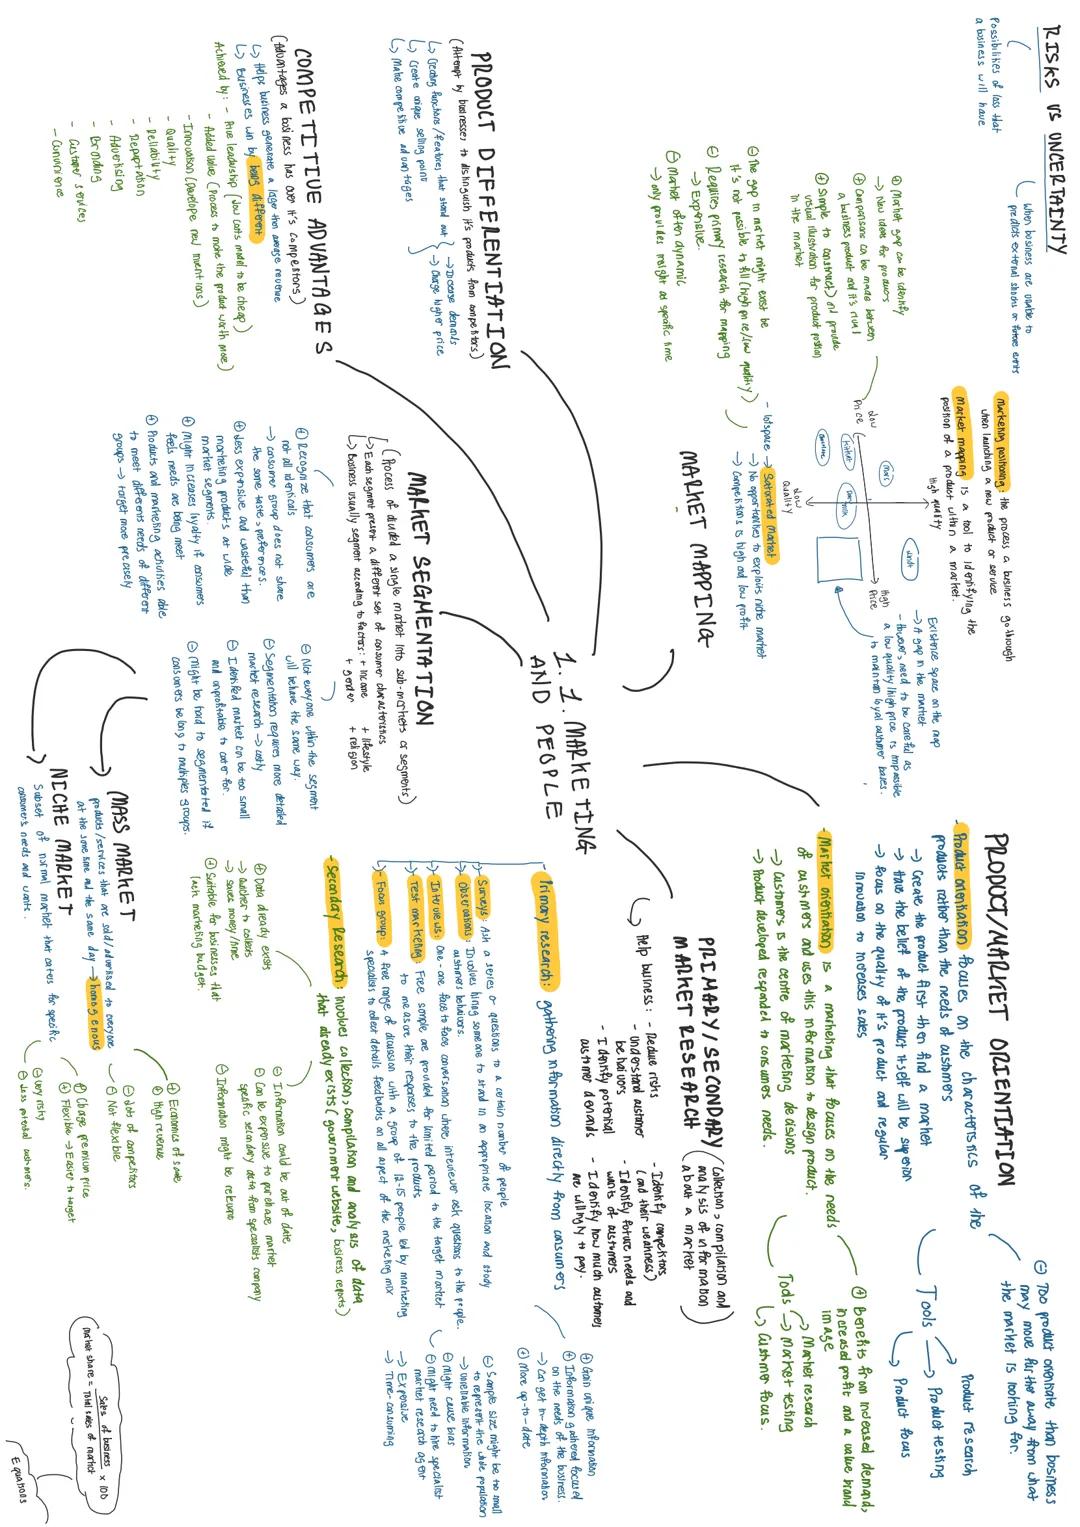 RISKS VS UNCERTAINTY
Possibilities of loss that
a business will have
When business are unable to
predicts external shocks or future events
⊕ Market gap can be identify
→ New ideas for products
⊕ Comparisons can be made between
a business product and it's rival
⊕ Simple to construct) and provide
visual illustration for product position
in the market
⊖ The gap in market might exist be
it's not possible to fill (high price/low quality)
⊖ Requires primary research for mapping
→ Expensive.
⊖ Market often dynamic
→ only provides insight at specific time
Marketing positioning: the process a business go through
when launching a new product or service
Market mapping is a tool to identifying the
position of a product within a market.
High quality
Low
Price
High
Price
Low
Quality
Existence space on the map
→ A gap in the market
- However, need to be careful as
a low quality/high price is impossible
to maintain loyal customer bases.
- lotspace → Saturated Market
→ No opportunities to exploits niche market
→ Competitions is high and low profit
MARKET MAPPING
PRODUCT DIFFERENTIATION
(Attempt by businesses to distinguish it's products from competitors)
↳ Creating functions/features that stand out
↳ Create unique selling point
↳ Make competitive advantages
→ Increase demands
→ Charge higher price
COMPETITIVE ADVANTAGES
(Advantages a business has over it's competitors)
↳ Helps business generate a larger than average revenue
↳ Businesses win by being different
Achieved by: - Price leadership (low costs model to be cheap)
- Added value (Process to make the product worth more)
- Innovation (Develope new inventions)
- Quality
- Reliability
- Reputation
- Advertising
- Branding
- Customer services
- Convinience
1.1. MARKETING
AND PEOPLE
MARKET SEGMENTATION
(Process of divided a single market into sub-markets or segments)
↳ Each segment present a different set of consumer characteristics
↳ Business usually segment according to factors: + income + lifestyle
+ gender + religion
⊕ Recognize that consumers are
not all identicals
→ consumer group does not share
the same tastes preferences.
⊕ Less expensive and wasteful than
marketing products at wide
market segments.
⊕ Might increases loyalty if consumers
feels needs are being meet
⊕ Products and marketing activities able
to meet differents needs of different
groups → target more precisely
⊖ Not everyone within the segment
will behave the same way.
⊖ Segmentation requires more detailed
market research → costly
⊖ Identified market can be too small
and unprofitable to cater for.
⊖ Might be hard to segmentated if
consumers belong to multiples groups.
MASS MARKET
products/services that are sold/advertised to everyone
at the same time and the same day → homogenous
⊕ Economics of scale
⊕ High revenue
⊖ Lots of competitors
⊖ Not flexible
NICHE MARKET
Subset of normal market that caters for specific
consumers needs and wants.
⊕ Charge premium price
⊕ Flexible → Easier to target
⊖ Very risky
⊖ Less potential customers.
PRODUCT/MARKET ORIENTIATION
- Product orientiation focuses on the characteristics of the
products rather than the needs of customers
→ Create the product first then find a market
→ Have the belief of the product itself will be superior
→ focus on the quality of it's product and regular
innovation to increases sales
⊖ Too product orientate than business
may move further away from what
the market is looking for.
Tools
→ Product research
→ Product testing
→ Product focus
- Market orientiation is a marketing that focuses on the needs
of customers and uses this information to design product.
→ Customers is the centre of marketing decisions
→ Product developed responded to consumers needs.
⊕ Benefits from increased demand,
increased profit and a value brand
image
Tools
→ Market research
→ Market testing
↳ Customer focus.
PRIMARY/SECONDARY
MARKET RESEARCH
(Collection, compilation and
analysis of information
about a market)
Help business: - Reduce risks
- Understand customer
behaviours
- Identify potential
customer demands
- Identify competitors
(and their weakness)
- Identify future needs and
wants of customers
- Identify how much customers
are willingly to pay.
Primary research: gathering information directly from consumers
- Surveys: Ask a series or questions to a certain number of people
- Observations: Involves hiring someone to stand in an appropriate location and study
customers behaviors.
- Interviews: One-one face to face conversation where interviewer ask questions to the people.
- Test marketing: Free sample are provided for limited period to the target market
to measure their responses to the products
- Focus group: A free range of discussion with a group of 12-15 people led by marketing
specialists to collect details feedbacks on all aspect of the marketing mix
⊕ Gain unique information
⊕ Information gathered focused
on the needs of the business.
→ Can get in-depth information
⊕ More up-to-date
⊖ Sample size might be too small
to represent the whole population
→ unreliable information.
⊖ Might cause bias
⊖ Might need to hire specialist
market research agent
→ Expensive
→ Time-consuming
- Secondary Research: involves collection, compilation and analysis of data
that already exists (government website, business reports)
⊕ Data already exists
→ Quicker to collects
→ saves money/time
⊕ Suitable for businesses that
lack marketing budget.
⊖ Information could be out of date
⊖ Can be expensive to purchase market
specific secondary data from specialists company
⊖ Information might be
Market share = Sales of business / Total sales of market × 100
Equations